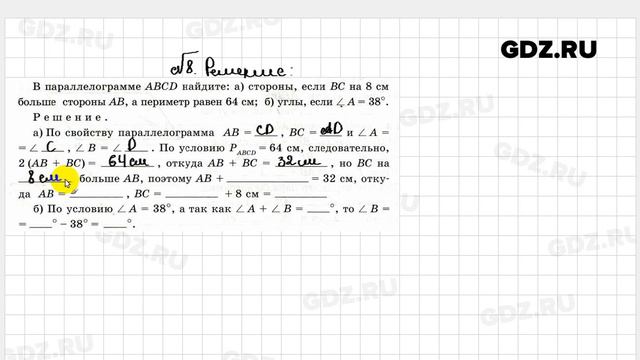 GDZ.RU
№8. Решение:
В параллелограмме ABCD найдите: а) стороны, если BC на 8 см
больше стороны AB, а периметр равен 64 см; б) углы, если ∠ A = 38°.
Решение.
а) По свойству параллелограмма AB = CD , BC = AD и ∠ A =
= ∠ C , ∠ B = ∠ D . По условию P_ABCD = 64 см, следовательно,
2 (AB + BC) = 64 см , откуда AB + BC = 32 см , но BC на
8 см больше AB, поэтому AB + ________ = 32 см, отку-
да AB = ________ , BC = ________ + 8 см = ________
б) По условию ∠ A = 38°, а так как ∠ A + ∠ B = ____°, то ∠ B =
= ____° – 38° = ____°.